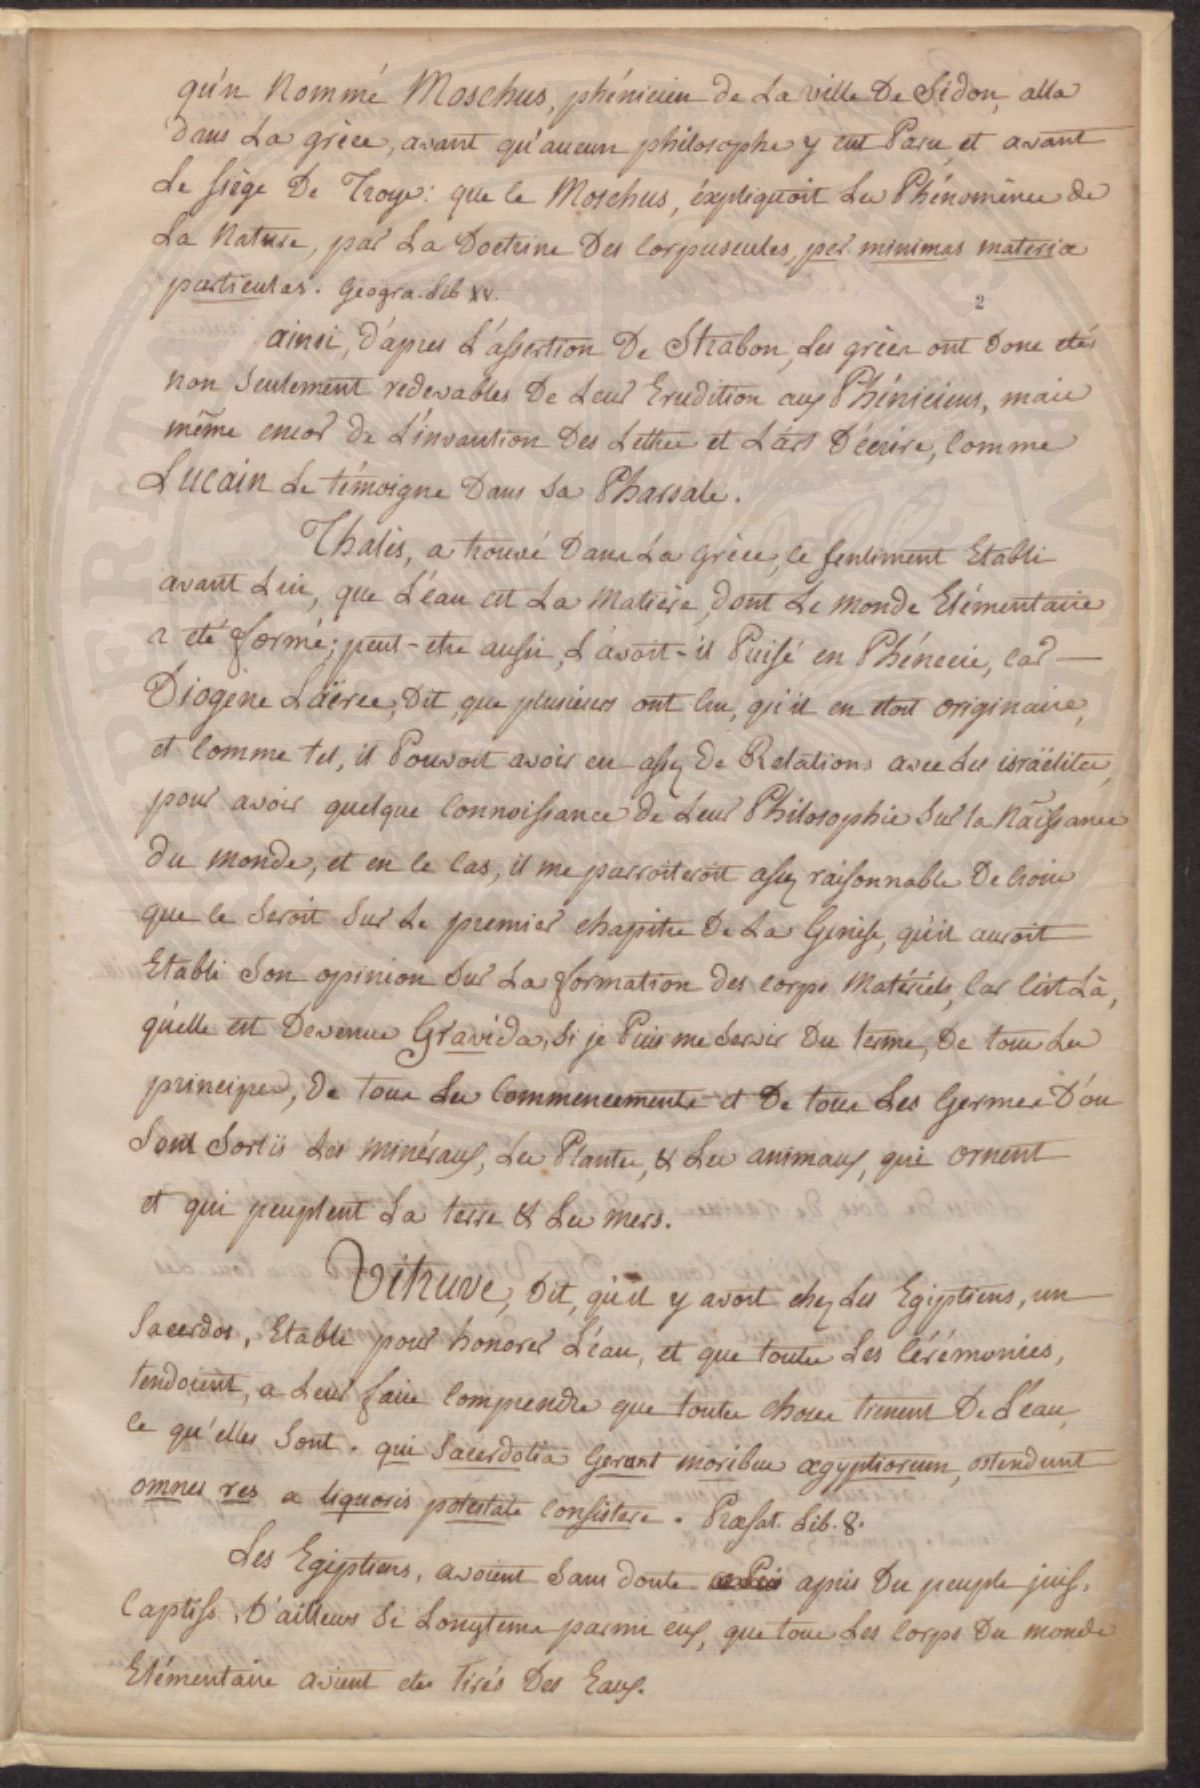 qu'n Nommé Moschus, phénicien de La ville De Sidon, alla
dans La grèce, avant qu'aucun philosophe y eut Paru, et avant
Le siège De Troye: que ce Moschus, éxpliquoit Les Phénomènes de
La Nature, par La Doctrine Des Corpuscules, per minimas materiæ
particulas. Geogra. Lib XV.
2
ainsi, d'àpres L'assertion De Strabon, Les grècs ont Donc etés
non Seulement redevables De Leur Erudition aux Phéniciens, mais
même encor de L'invantion Des Lettres et L'árt D'écrire, Comme
LUCAIN Le témoigne Dans Sa Pharsale.
Thalès, a trouvé Dans La Grèce, ce sentiment Etabli
avant Lui, que L'éau est La Matière, dont Le monde Elémentaire
a eté formé; peut-etre aussi, L'avoit-il Puisé en Phénicie, Car —
Diogène Laërce, Dit, que plusieurs ont lru, qu'il en etoit originaire,
et Comme tel, il Pouvoit avoir eu assez De Relations avec Les israëlites,
pour avoir quelque Connoissance de Leur Philosophie Sur la Naissance
du monde, et en ce Cas, il me parroiteroit assez raisonnable De Croire
que ce Seroit Sur Le premier chapitre De La Genèse, qu'il auroit
Etabli Son opinion Sur La formation des Corps Matériels, Car C'est Là,
qu'elle est Devenue Gravida, Si je Puis me Servir Du terme, De tous Les
principes, De tous Les Commencements et De tous Les Germes D'ou
Sont Sortis Les minéraux, Les Plantes, & Les animaux, qui ornent
et qui peuplent La terre & Les mers.
Vitruve, Dit, qu'il y avoit chez Les Egiptiens, un
Sacerdos, Etabli pour honorer L'éau, et que toutes Les Cérémonies,
tendoient, a Leur faire Comprendre que toutes choses tienent De L'éau,
ce qu'elles Sont. qui Sacerdotia Gerunt moribus ægyptiorum, ostendunt
omnes res a liquoris potestate Consistere. Præfat. Lib. 8.
Les Egiptiens, avoient Sans doute apris Du peuple juif,
Captifs D'ailleurs Si Longtems parmi eux, que tous Les Corps Du monde
Elémentaire avient etes tirés Des Eaux.